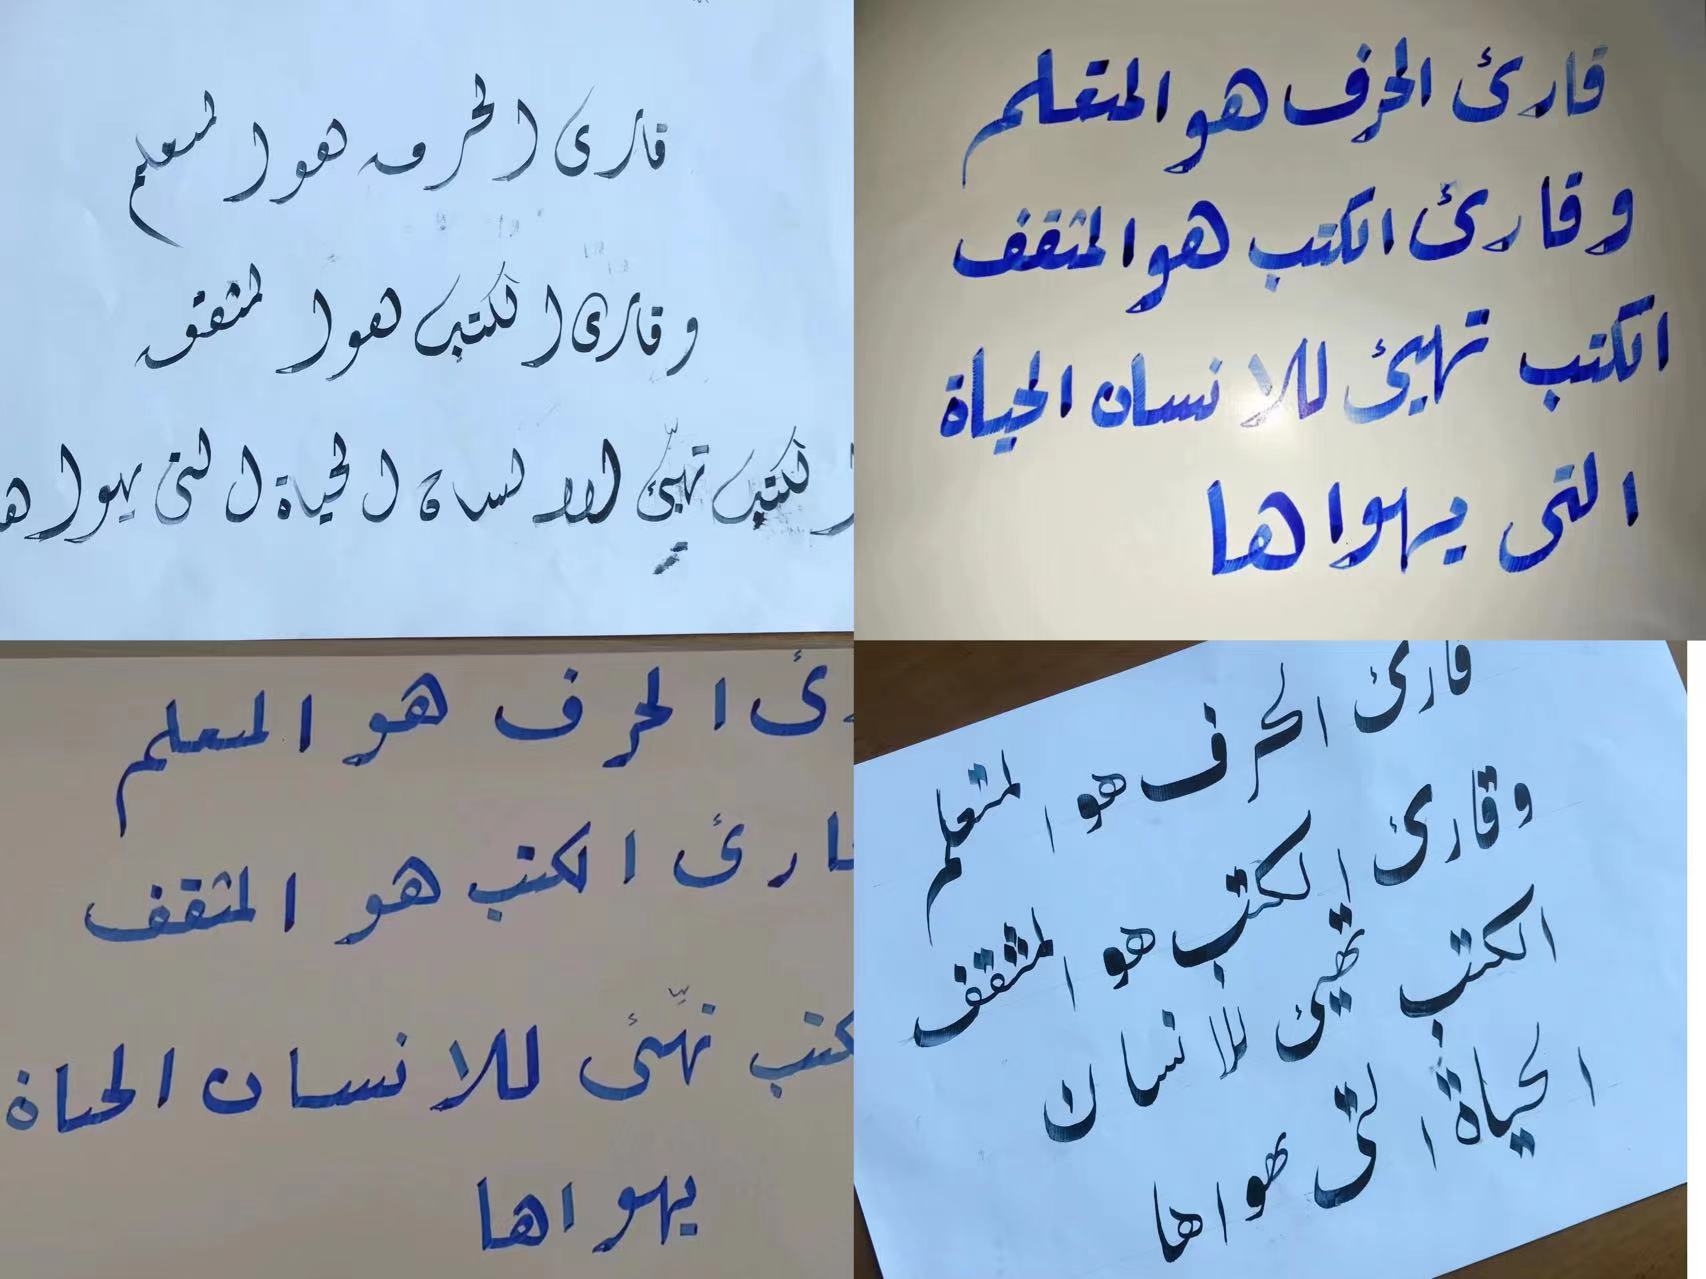 قارئ الحرف هو المتعلم
وقارئ الكتب هو المثقف
الكتب تهيئ للانسان الحياة التى يهواها
قارئ الحرف هو المتعلم
وقارئ الكتب هو المثقف
الكتب تهيئ للانسان الحياة
التى يهواها
ئ الحرف هو المعلم
ارئ الكتب هو المثقف
كتب تهيئ للانسان الحياة
يهواها
قارئ الحرف هو المتعلم
وقارئ الكتب هو المثقف
الكتب تهيئ للانسان
الحياة التى يهواها